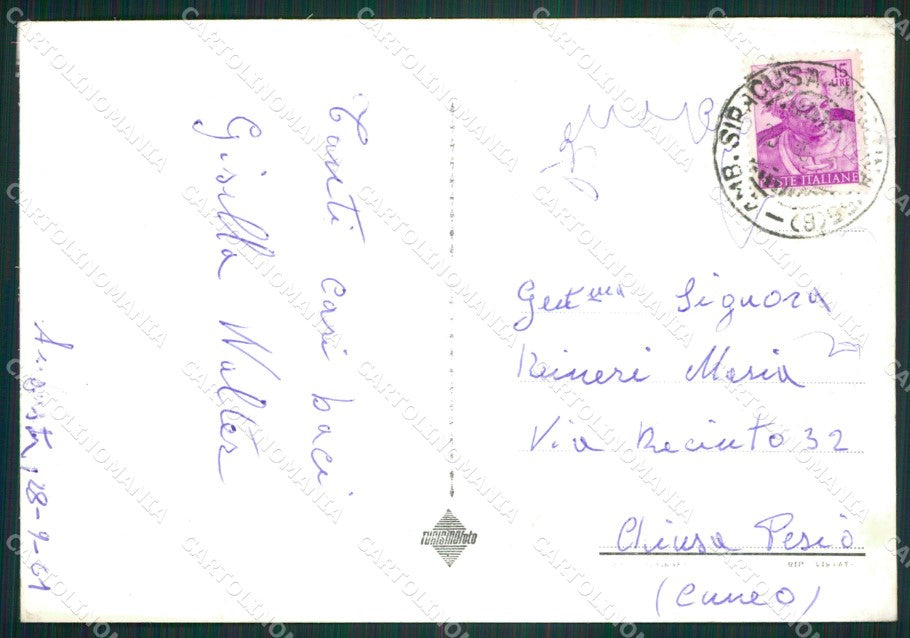 Tanti cari baci
Gisella Walter
Augusta, 28-9-61
15
LIRE
POSTE ITALIANE
AMB. SIRACUSA
(8)
Gent.ma Signora
Reineri Maria
Via Recinto 32
Chiusa Pesio
(Cuneo)
TURISMOfoto
CARTOLINOMANIA